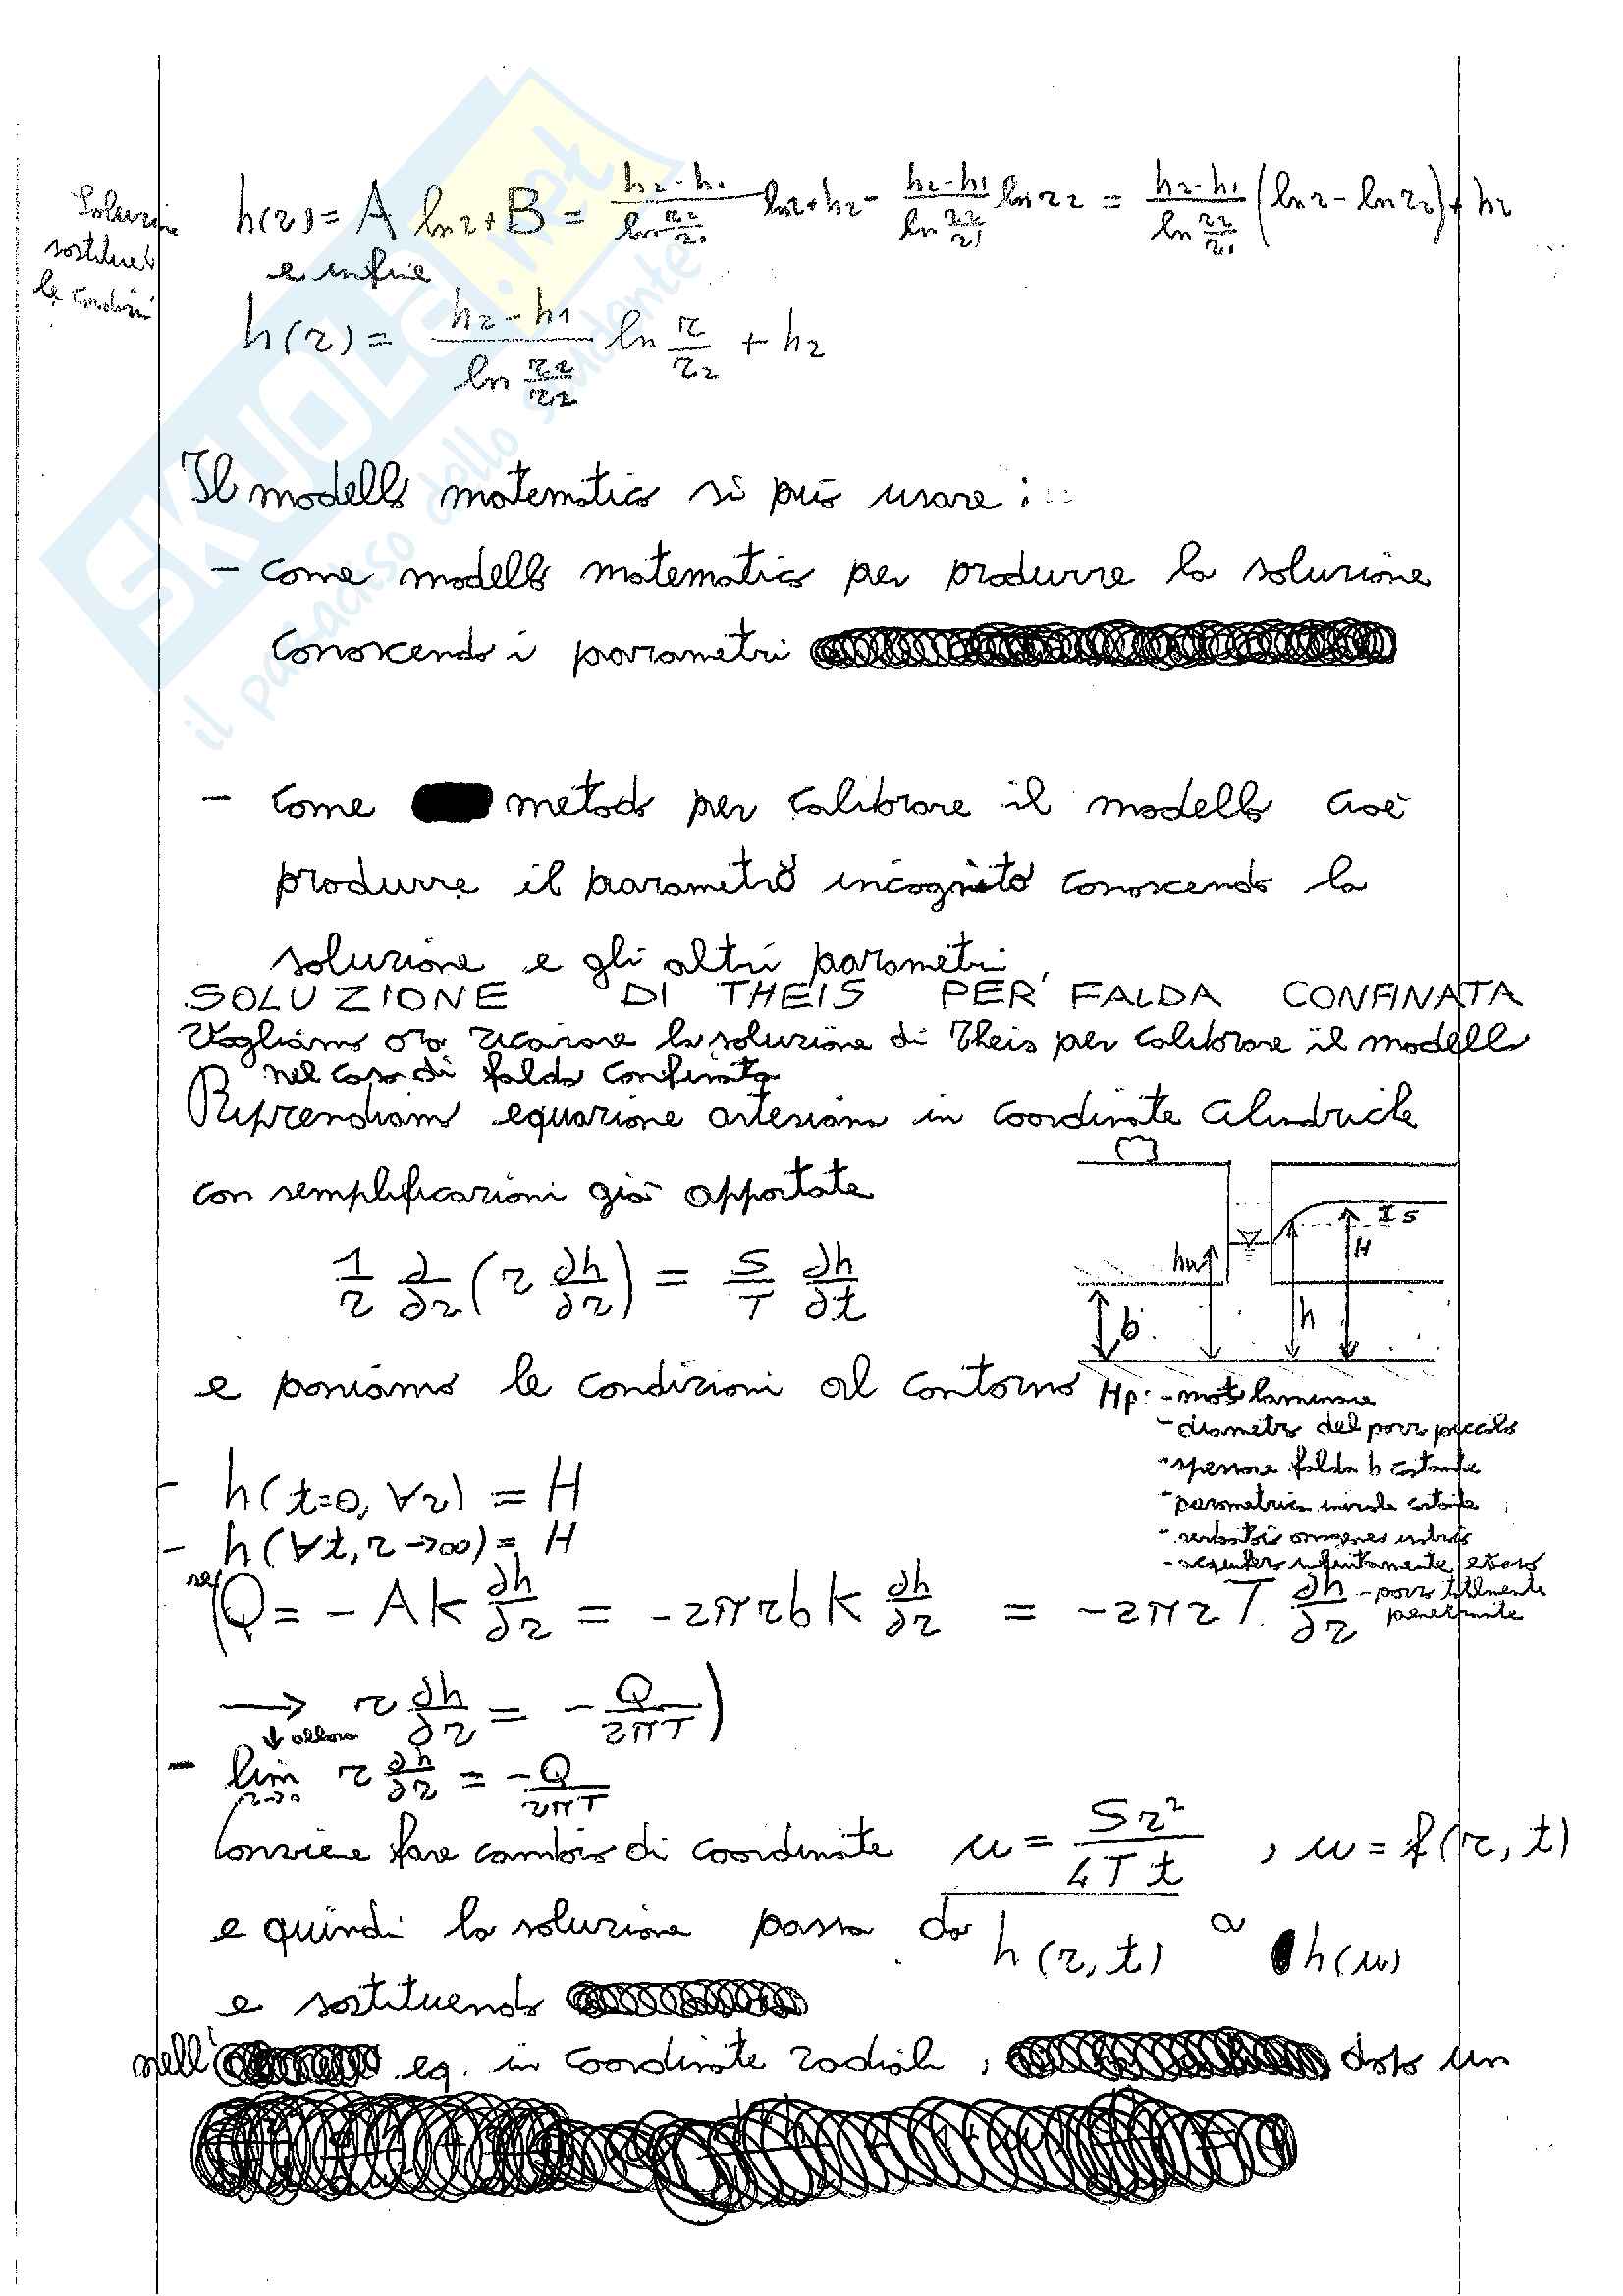 Soluzione
sostituendo
le condizioni
h(r) = A ln r + B = (h2 - h1)/(ln r2/r1) ln r + h2 - (h2 - h1)/(ln r2/r1) ln r2 = (h2 - h1)/(ln r2/r1) (ln r - ln r2) + h2
e infine
h(r) = (h2 - h1)/(ln r2/r2) ln r/r2 + h2
Il modello matematico si può usare :
- come modello matematico per produrre la soluzione
conoscendo i parametri
- come metodo per calibrare il modello cioè
produrre il parametro incognito conoscendo la
soluzione e gli altri parametri
SOLUZIONE DI THEIS PER FALDA CONFINATA
Vogliamo ora ricavare la soluzione di Theis per calibrare il modello
nel caso di falda confinata
Riprendiamo equazione artesiana in coordinate cilindriche
con semplificazioni già apportate
1/r ∂/∂r (r ∂h/∂r) = S/T ∂h/∂t
hw
b
h
H
I S
e poniamo le condizioni al contorno
Hp: - moto laminare
- diametro del pozzo piccolo
- spessore falda b costante
- piezometrica iniziale costante
- serbatoio omogeneo isotropo
- acquifero infinitamente esteso
- pozzo totalmente
penetrante
- h(t=0, ∀r) = H
- h(∀t, r→∞) = H
se
(Q = - A k ∂h/∂r = -2πrbk ∂h/∂r = -2πrT ∂h/∂r
→ r ∂h/∂r = - Q/2πT)
↓ allora
- lim r→0 r ∂h/∂r = -Q/2πT
Conviene fare cambio di coordinate u = Sr²/4Tt , u = f(r,t)
e quindi la soluzione passa da h(r,t) a h(u)
e sostituendo
nell' eq. in coordinate radiali, dato un
SKUOLA.net
il paradiso dello studente